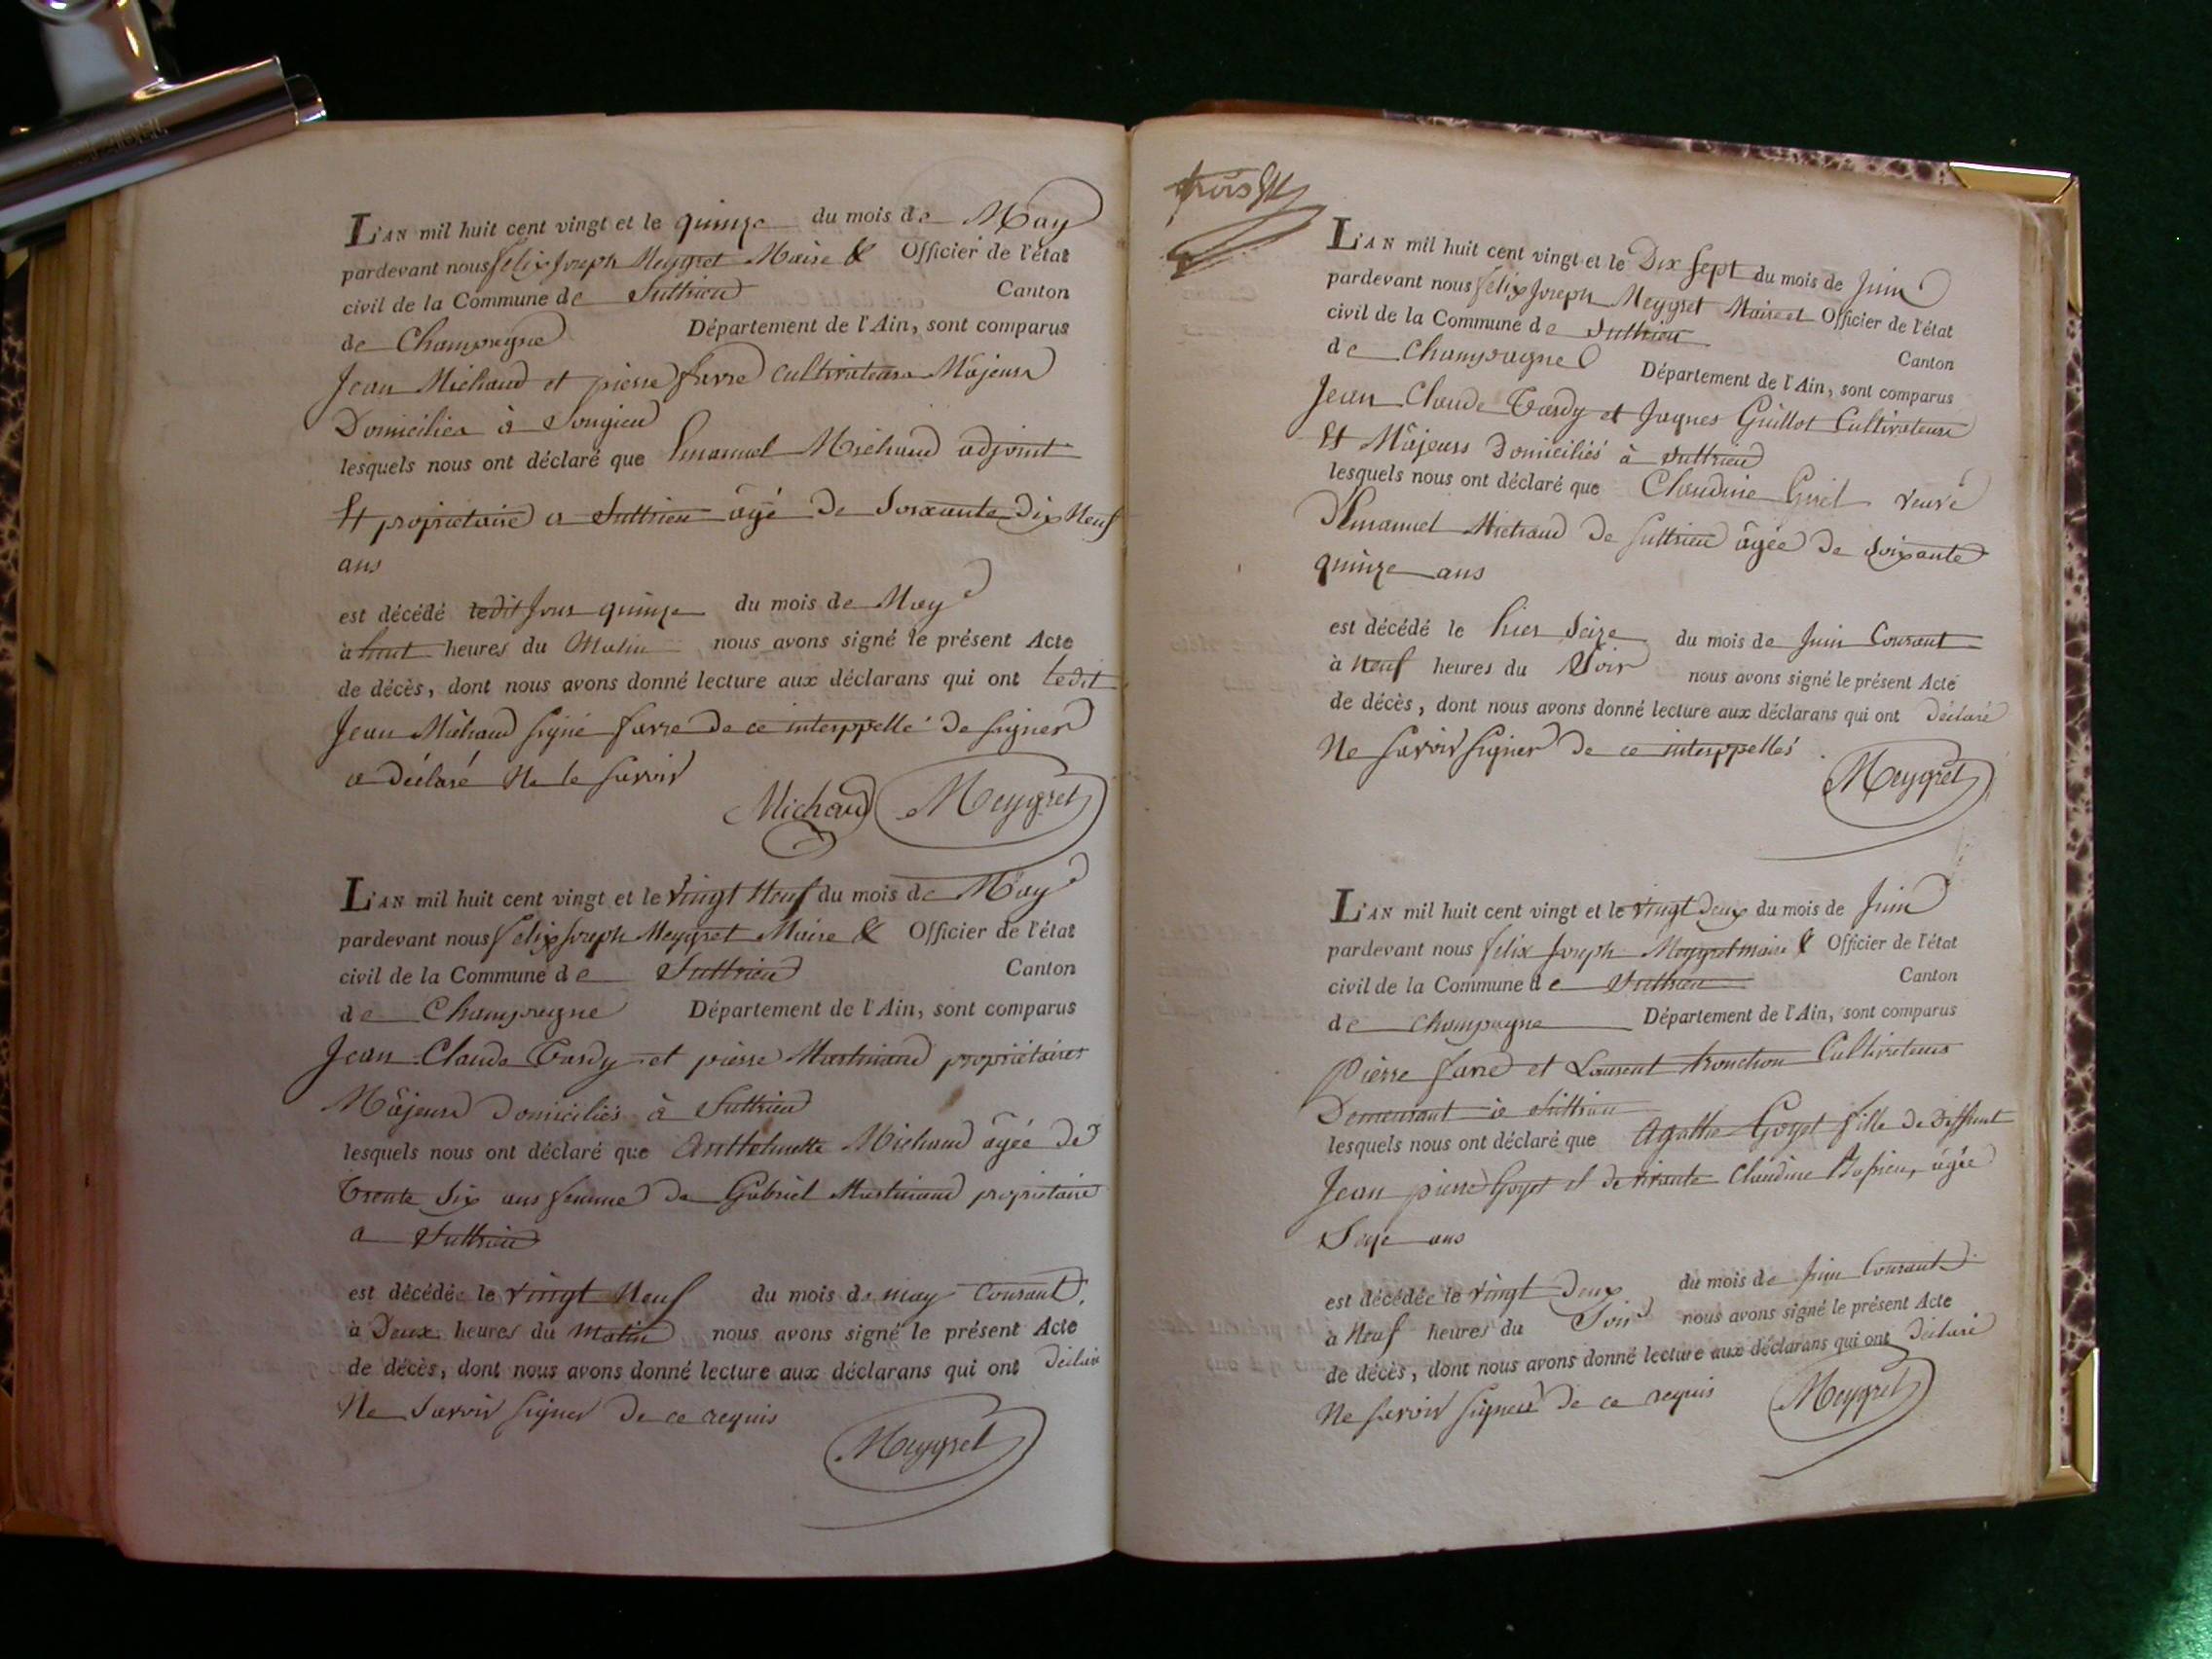 L'AN mil huit cent vingt et le quinze du mois de May
pardevant nous felix joseph Meygret Maire & Officier de l'état
civil de la Commune de Suttrieu Canton
de Champagne Département de l'Ain, sont comparus
Jean Michaud et pierre favre cultivateurs Majeurs
Domiciliés à Songieu
lesquels nous ont déclaré que Emanuel Michaud adjoint
Et propriétaire a Suttrieu âgé de Soixante Dix Neuf
ans
est décédé ledit Jour quinze du mois de May
à huit heures du Matin nous avons signé le présent Acte
de décès, dont nous avons donné lecture aux déclarans qui ont ledit
Jean Michaud signé favre de ce interppellé de signer
a déclaré Ne le savoir
Michaud Meygret
L'AN mil huit cent vingt et le vingt Neuf du mois de May
pardevant nous felix joseph Meygret Maire & Officier de l'état
civil de la Commune de Suttrieu Canton
de Champagne Département de l'Ain, sont comparus
Jean Claude Tardy et pierre Martinand propriétaires
Majeurs Domiciliés à Suttrieu
lesquels nous ont déclaré que Anthelmette Michaud âgée de
Trente Six ans femme de Gabriel Martinand propriétaire
a Suttrieu
est décédée le vingt Neuf du mois de may Courant.
à Deux heures du Matin nous avons signé le présent Acte
de décès, dont nous avons donné lecture aux déclarans qui ont déclaré
Ne Savoir signer de ce requis
Meygret
L'AN mil huit cent vingt et le Dix sept du mois de Juin
pardevant nous felix joseph Meygret Maire et Officier de l'état
civil de la Commune de Suttrieu
de Champagne Canton
Département de l'Ain, sont comparus
Jean Claude Tardy et Jaques Guillot Cultivateurs
Et Majeurs Domiciliés à Suttrieu
lesquels nous ont déclaré que Claudine veuve
D'Emanuel Michaud de Suttrieu âgée de soixante
quinze ans
est décédé le hier Seize du mois de Juin Courant
à Neuf heures du Soir nous avons signé le présent Acte
de décès, dont nous avons donné lecture aux déclarans qui ont déclaré
Ne savoir signer de ce interppellés.
Meygret
L'AN mil huit cent vingt et le vingt Deux du mois de Juin
pardevant nous felix joseph Meygret maire & Officier de l'état
civil de la Commune de Suttrieu Canton
de Champagne Département de l'Ain, sont comparus
Pierre favre et Laurent tronchon Cultivateurs
Demeurant à Suttrieu
lesquels nous ont déclaré que Agathe Goyet fille de Deffunt
Jean pierre Goyet et de vivante Claudine âgée
Seize ans
est décédée le vingt Deux du mois de Juin Courant
à Neuf heures du Soir nous avons signé le présent Acte
de décès, dont nous avons donné lecture aux déclarans qui ont déclaré
Ne savoir signer de ce requis
Meygret